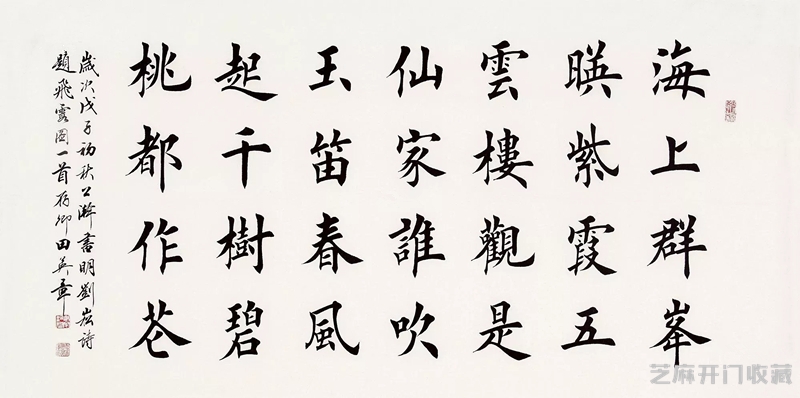 海上群峯
暎紫霞五
雲樓觀是
仙家誰吹
玉笛春風
起千樹碧
桃都作花
歲次戊子初秋書明劉崧詩
題飛圖一首存卿田英章
芝麻开门收藏